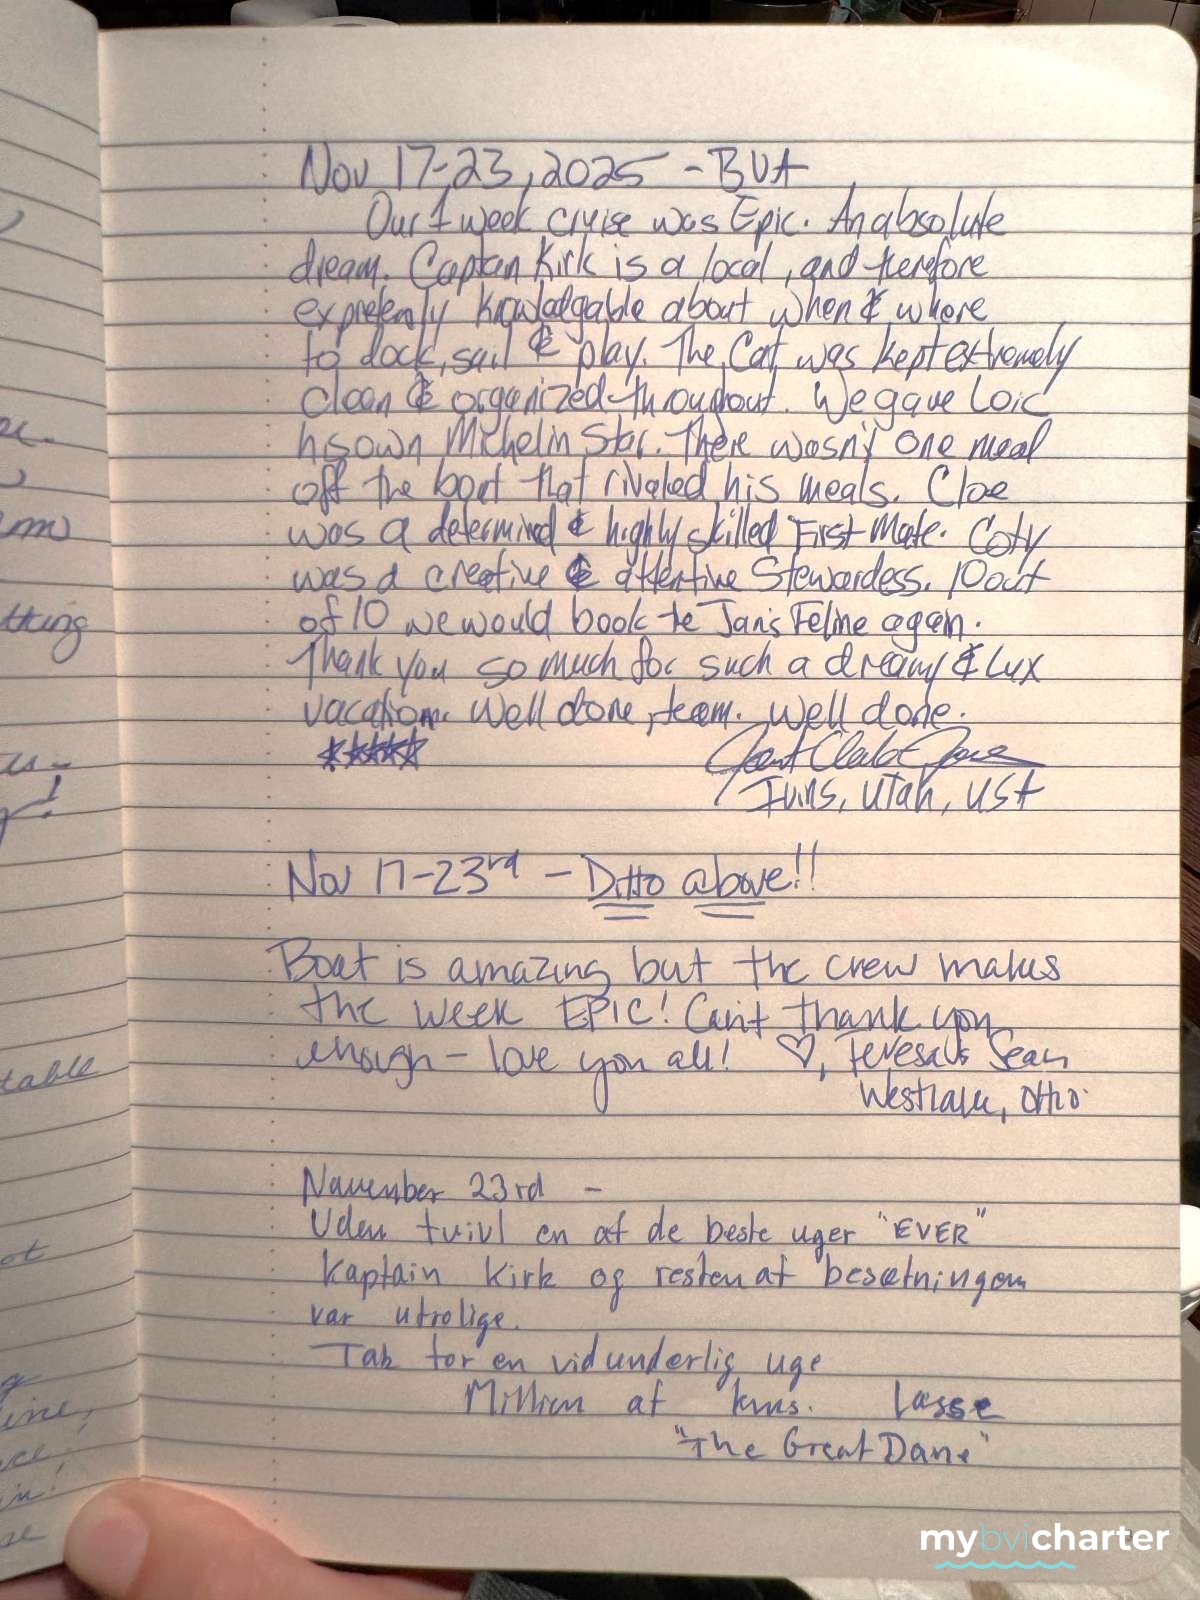 Nov 17-23, 2025 - BVA
Our 1 week cruise was Epic. An absolute
dream. Captain Kirk is a local, and therefore
knowledgable about when & where
to dock, sail & play. The Cat was kept extremely
clean & organized throughout. We gave Loic
his own Michelin Star. There wasn't one meal
off the boat that rivaled his meals. Cloe
was a determind & highly skilled First Mate. Coty
was a creative & attentive Stewardess. 10 out
of 10 we would book te Jan's Feline again.
Thank you so much for such a dreamy & Lux
vacation. Well done, team. Well done.
★★★★★
Ivins, Utah, USA
Nov 17-23rd - Ditto above!!
Boat is amazing but the crew makes
the week EPIC! Can't thank you
enough - love you all! ♡, Teresa & Sean
Westlake, Ohio
November 23rd -
Uden tvivl en af de beste uger "EVER"
Kaptain Kirk og resten af besætningen
var utrolige.
Tak for en vidunderlig uge
Million af knus. Lasse
"The Great Dane"
thing
table
mybvicharter